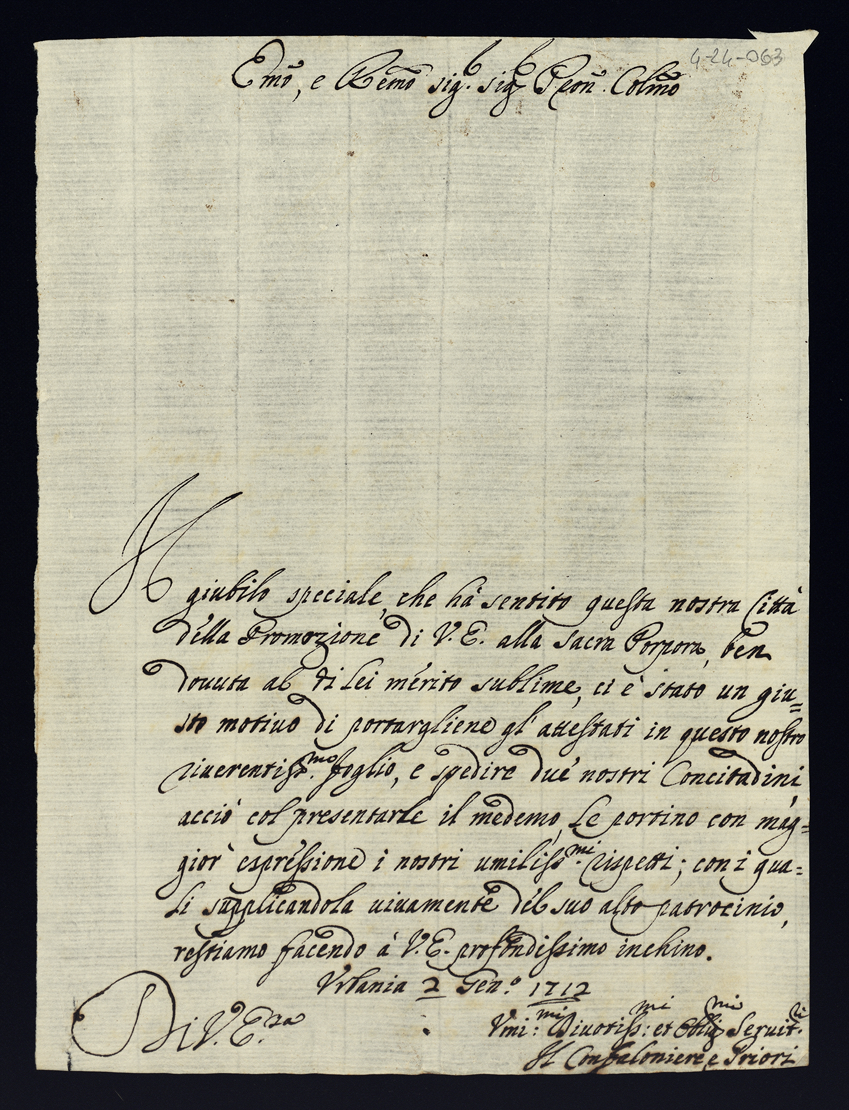 4-24-063
Emõ, e Remõ sig.r sig.r Pron. Colmõ
Il giubilo speciale, che hà sentito questa nostra Città
della Promozione di V. E. alla sacra Porpora, ben
douuta al di Lei merito sublime, ci è stato un giu=
sto motiuo di portargliene gl'attestati in questo nostro
riuerentiss.mo foglio, e spedire due nostri Concitadini,
acciò col presentarle il medemo, Le portino con mag=
gior espressione i nostri umiliss.mi rispetti; con i qua=
li supplicandola uiuamente del suo alto patrocinio,
restiamo facendo à V. E. profondissimo inchino.
Vrbania 2 Gen.o 1712
Di V. E.za
Vmi:mi Diuotiss:mi et Oblig.mi Seruit.ri
Il Confaloniere, e Priori